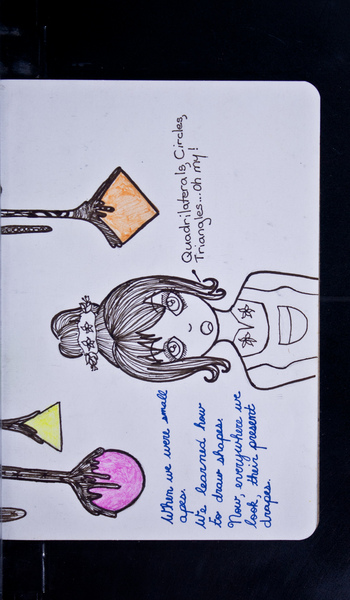 Quadrilaterals, Circles,
Triangles...oh my!
When we were small
apes.
We learned how
to draw shapes.
Now, everywhere we
look, their present
drapes.